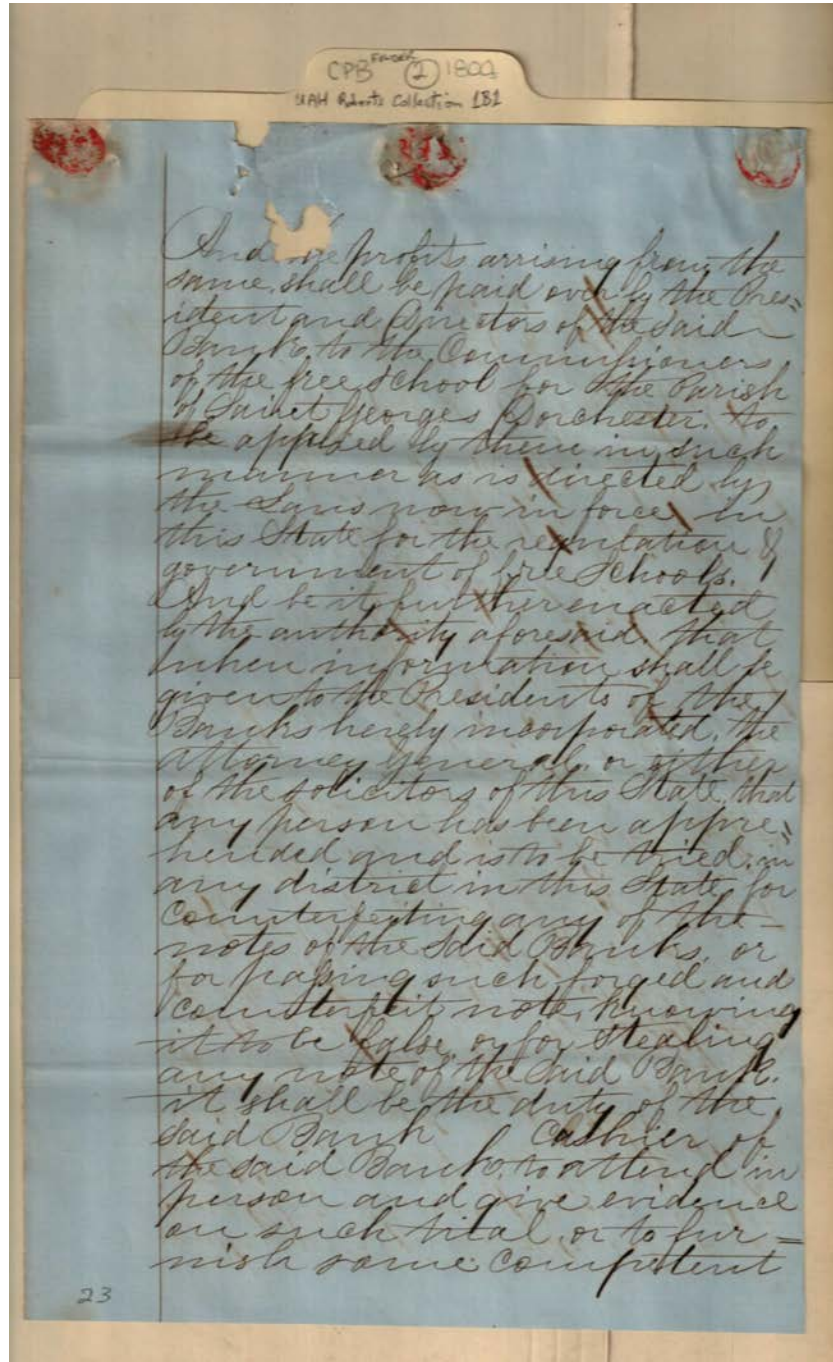 CPB Folder 2 180
UAH Roberts Collection 1B1
And the profits arrising from the
same, shall be paid over by the Pres=
ident and Directors of the Said
Bank, to the Commissioners
of the free School for the Parish
of Saint Georges Dorchester. to
be applied by them in such
manner as is directed by
the Laws now in force in
this State for the regulation &
government of free Schools.
And be it further enacted
by the authority aforesaid that
when information shall be
given to the Presidents of the
Banks hereby incorporated, the
attorney General, or either
of the solicitors of this State, that
any person has been appre=
hended and is to be tried, in
any district in this State, for
Counterfeiting any of the
notes of the Said Banks, or
for passing such forged and
Counterfeit note, knowing
it to be false, or for Stealing
any note of the Said Bank.
it shall be the duty of the
Said Bank Cashier of
the said Bank, to attend in
person and give evidence
on such trial, or to fur=
nish some Competent
23